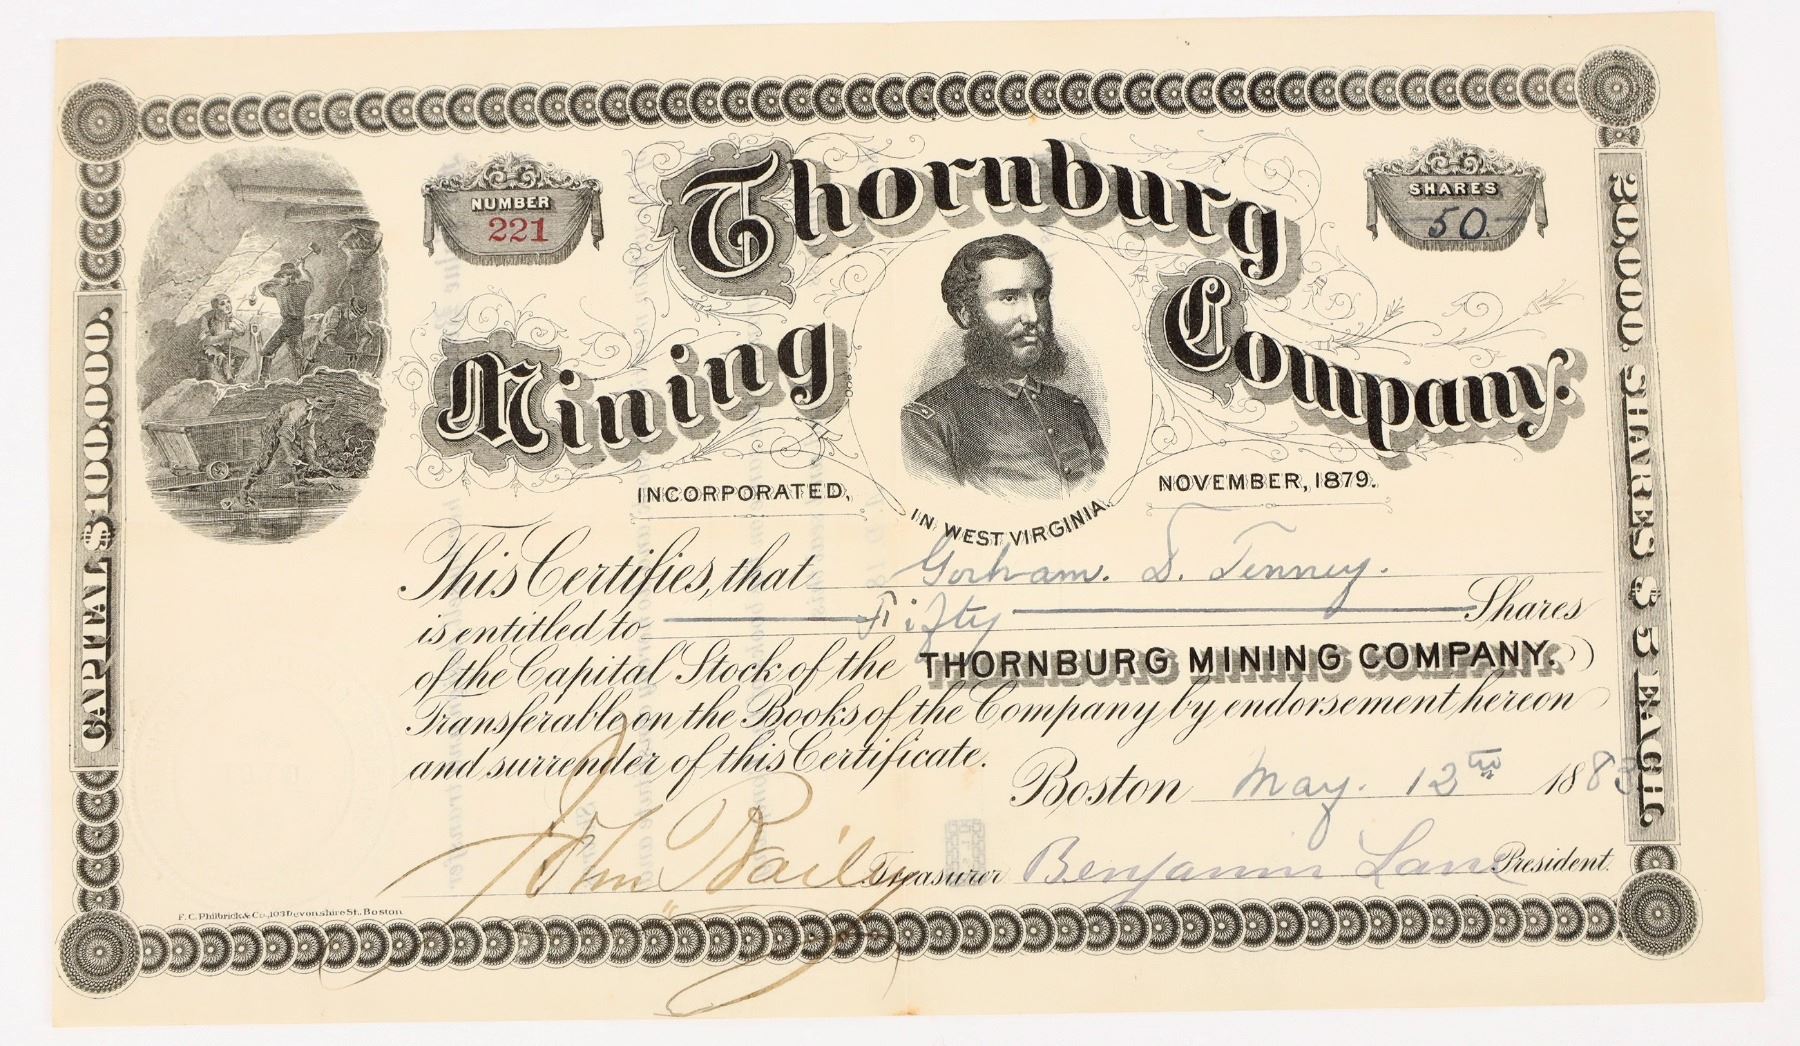 NUMBER
221
Thornburg
Mining Company.
SHARES
50.
INCORPORATED, IN WEST VIRGINIA. NOVEMBER, 1879.
This Certifies, that Gorham. D. Tenney.
is entitled to Fifty Shares
of the Capital Stock of the THORNBURG MINING COMPANY.
Transferable on the Books of the Company by endorsement hereon
and surrender of this Certificate.
Boston May. 12th 1883
John Baily Treasurer Benjamin Lane President.
F. C. Philbrick & Co., 103 Devonshire St., Boston
CAPITAL $100,000.
20,000. SHARES $5 EACH.